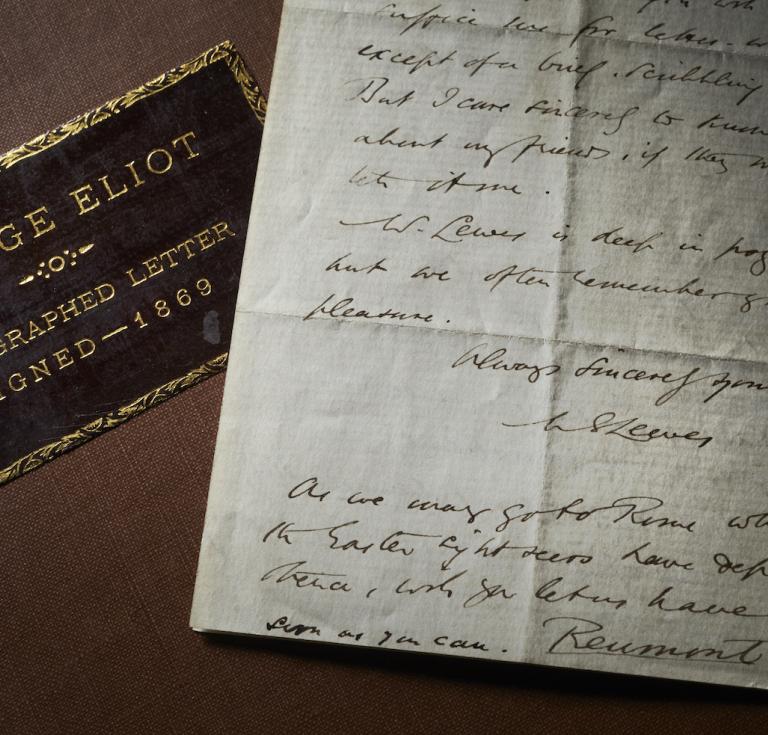 GE ELIOT
GRAPHED LETTER
IGNED—1869
suffice me for letter-w
except of a brief scribbling
But I care sincerely to know
about my friends, if they w
let it me.
Mr. Lewes is deep in
but we often remember
pleasure.
Always sincerely your
M E Lewes
As we may go to Rome wh
the Easter sight seers have dep
thence, will you let us have
soon as you can. Reumont